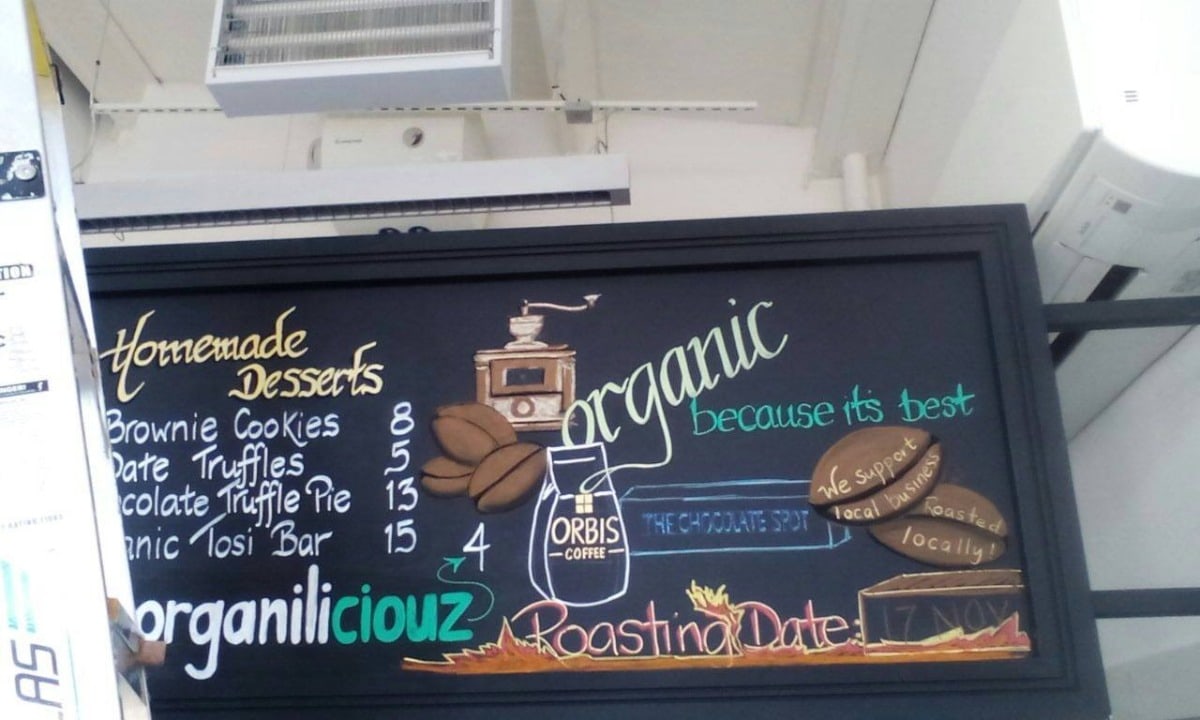 Homemade
Desserts
Brownie Cookies 8
Date Truffles 5
colate Truffle Pie 13
anic Tosi Bar 15
4
organiliciouz
organic
because its best
ORBIS
COFFEE
THE CHOCOLATE SPOT
We support
local business
Roasted
locally!
Roasting Date:
17 NOV
TION
LAS